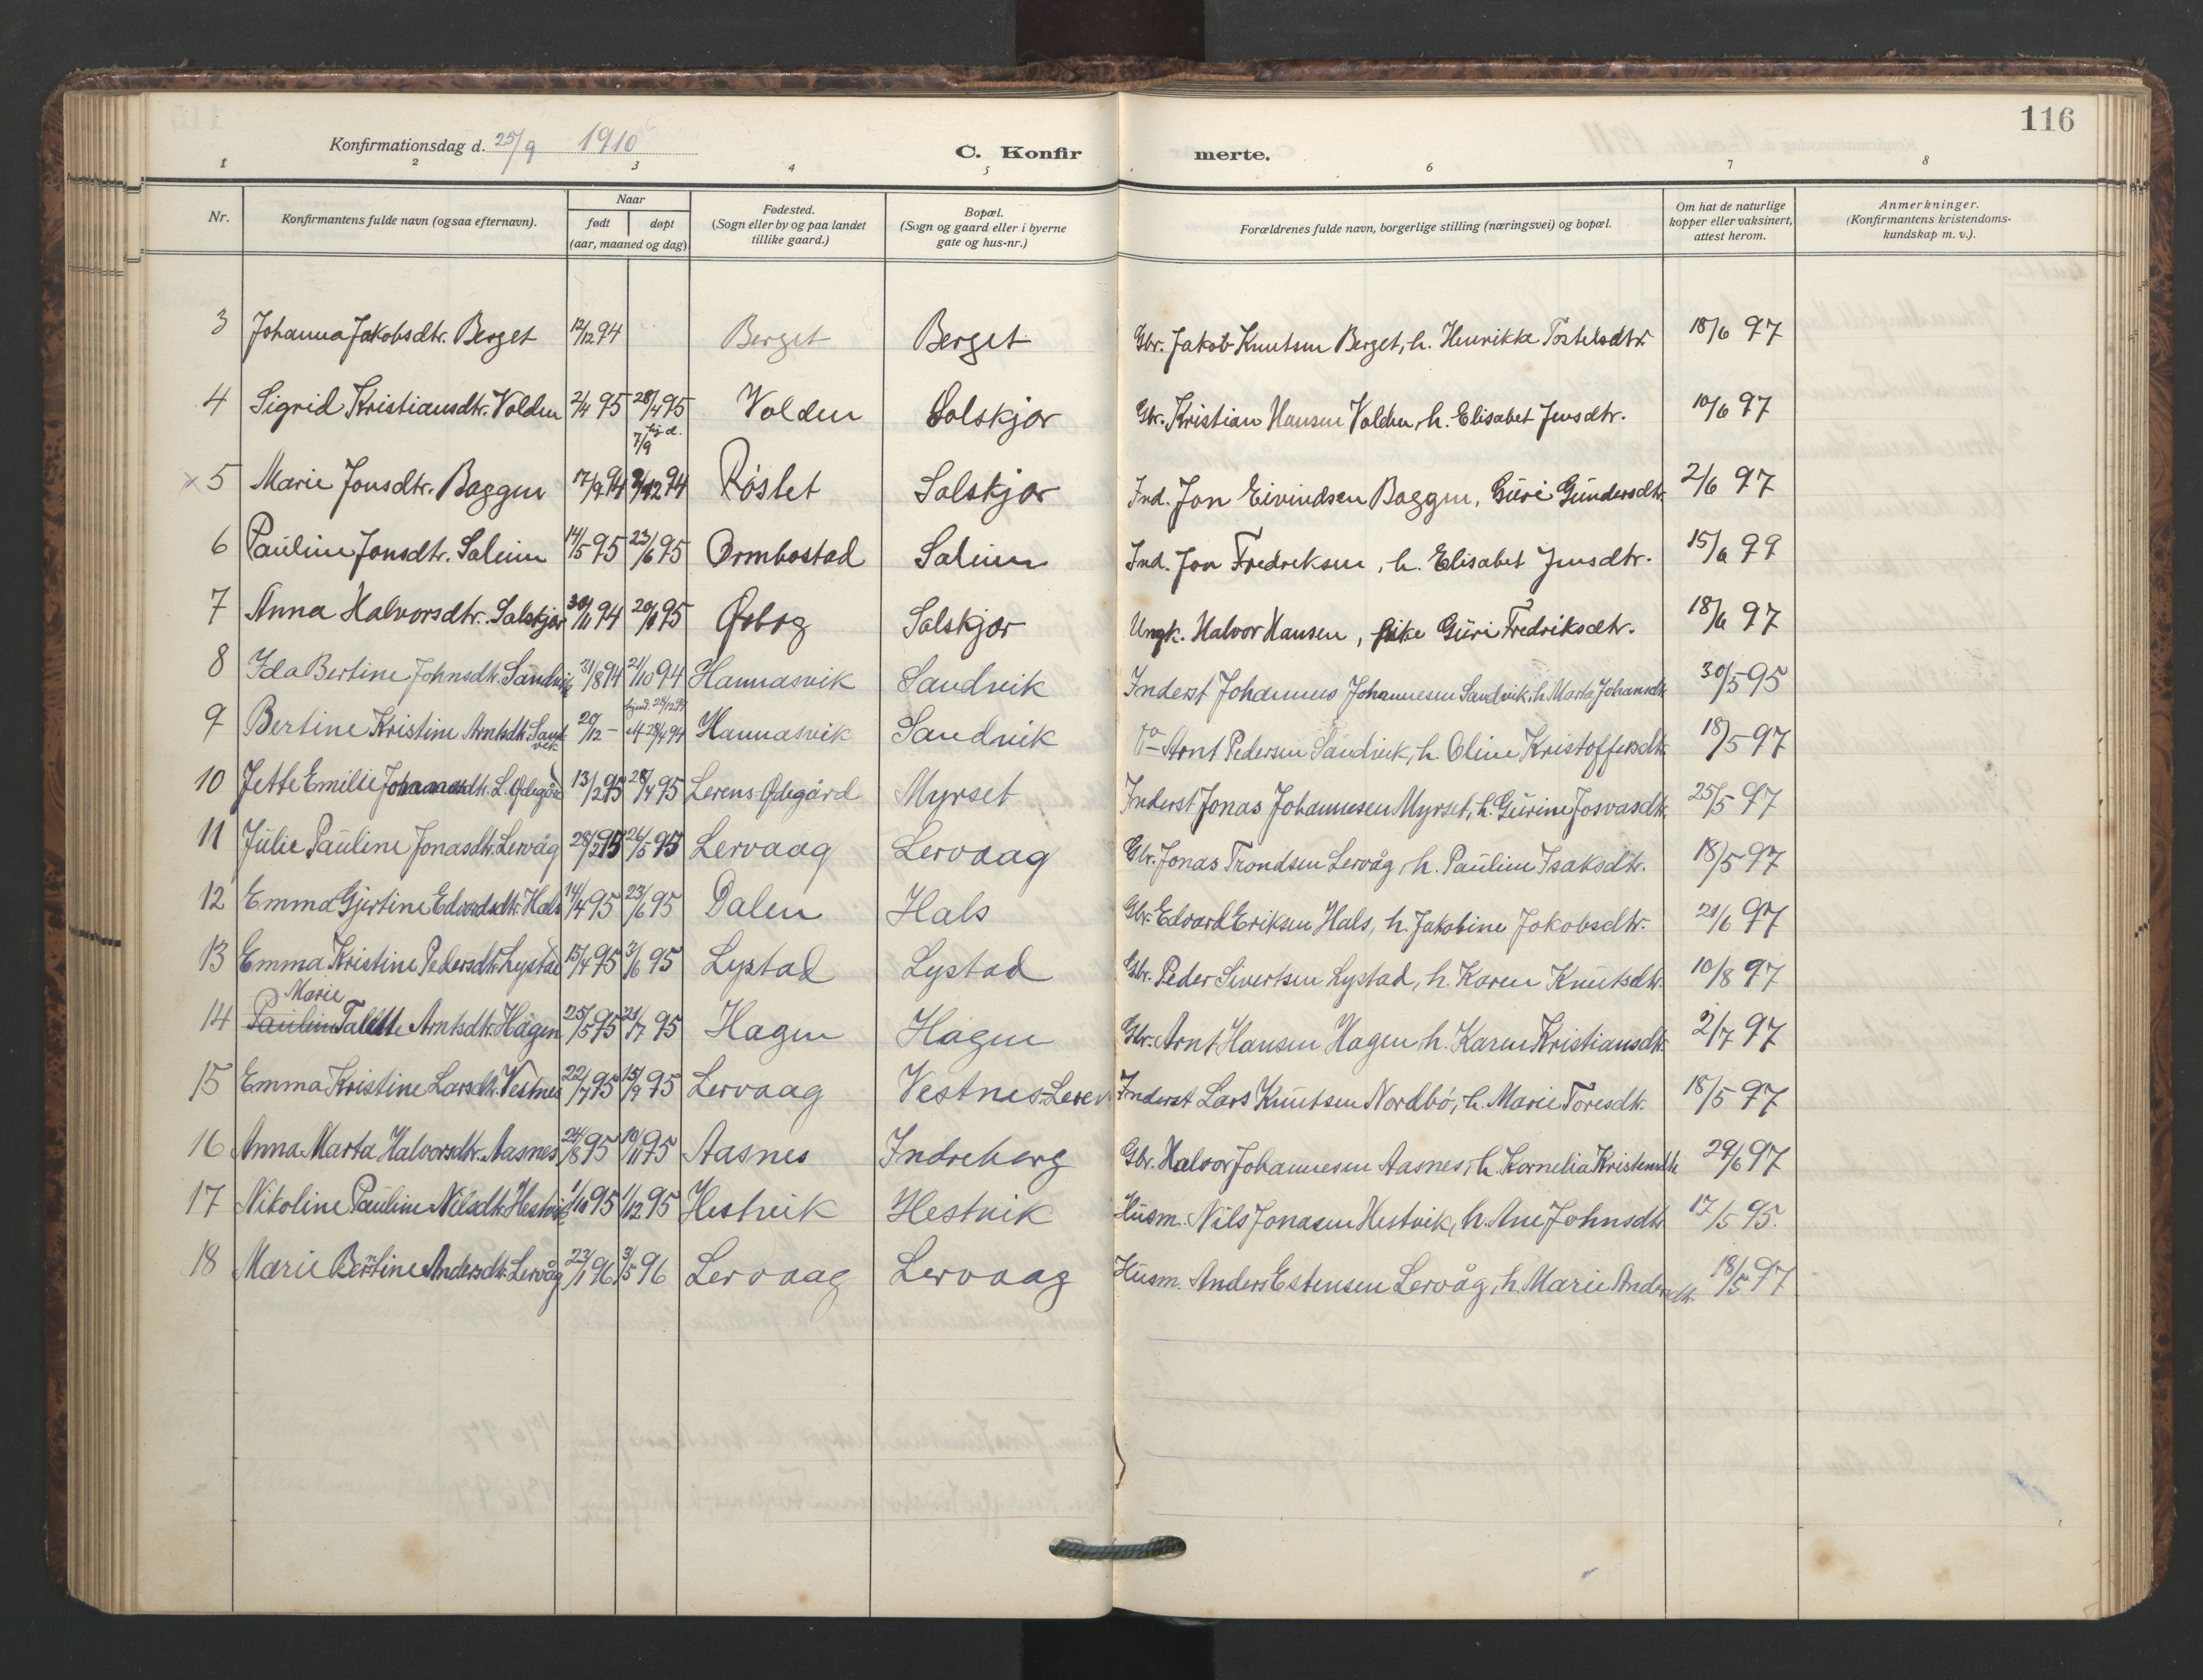 116
Konfirmationsdag d. 25/9 1910
C. Konfir merte.
1 2 3 4 5 6 7 8
Nr. Konfirmantens fulde navn (ogsaa efternavn). Naar født døpt (aar, maaned og dag) Fødested. (Sogn eller by og paa landet tillike gaard.) Bopæl. (Sogn og gaard eller i byerne gate og hus-nr.) Forældrenes fulde navn, borgerlige stilling (næringsvei) og bopæl. Om hat de naturlige kopper eller vaksinert, attest herom. Anmerkninger. (Konfirmantens kristendoms-kundskap m. v.).
3 Johanna Jakobsdtr. Berget 12/12 94 Berget Berget Gbr. Jakob Knutsen Berget, h. Henrikke Tostelsdtr. 18/6 97
4 Sigrid Kristiansdtr. Volden 2/4 95 28/4 95 Volden Solskjør Gbr. Kristian Hansen Volden, h. Elisabet Jensdtr. 10/6 97
hj. d. 7/9
5 Marie Jonsdtr. Baggen 17/9 94 2/12 94 Røslet Solskjør Ind. Jon Eivindsen Baggen, Guri Gundersdtr. 2/6 97
6 Pauline Jonsdtr. Saleim 14/5 95 23/6 95 Ormbostad Saleim Ind. Jon Fredreksen, h. Elisabet Jensdtr. 15/6 99
7 Anna Halvorsdtr. Solskjør 30/11 94 95 Solskjør Ungk. Halvor Hansen, pike Guri Fredriksdtr. 18/6 97
8 Ida Bertine Johnsdtr. Sandvik 31/8 94 21/10 94 Hannasvik Sandvik Inderst Johannes Johannesen Sandvik, h. Marta Johansdtr 30/5 95
9 Bertine Kristine Arntsdtr. Sandvik 20/12 – Hannasvik Sandvik Do Arnt Pedersen Sandvik, h. Oline Kristoffersdtr. 18/5 97
10 Jette Emilie L. Ødegård 13/2 95 28/4 95 Lerens Ødegård Myrset Inderst Jonas Johannesen Myrset, h. Gurine Josvasdtr. 25/5 97
11 Julie Pauline Jonasdtr. Lervåg 28/2 95 26/5 95 Lervaag Lervaag Gbr. Jonas Trondsen Lervåg, h. Pauline Isaksdtr. 18/5 97
12 Emma Gjertine Edvardsdtr. Hals 14/4 95 23/6 95 Dalen Hals Gbr. Edvard Eriksen Hals, h. Jakobine Jokobsdtr. 21/6 97
13 Emma Kristine Pedersdtr. Lystad 15/4 95 3/6 95 Lystad Lystad Gbr. Peder Sivertsen Lystad, h. Karen Knutsdtr. 10/8 97
Marie
14 Pauline Talette Arntsdtr. Hagen 25/5 95 21/7 95 Hagen Hagen Gbr. Arnt Hansen Hagen, h. Karen Kristiansdtr. 2/7 97
15 Emma Kristine Larsdtr. Vestnes 22/7 95 15/9 95 Lervaag Vestnes-Leren Inderst Lars Knutsen Nordbö, h. Marie Toresdtr. 18/5 97
16 Anna Marta Halvorsdtr. Aasnes 24/8 95 10/11 95 Aasnes Indreberg Gbr. Halvor Johannesen Aasnes, h. Kornelia Kristensdtr 29/6 97
17 Nikoline Pauline Nilsdtr. Hestvik 1/10 95 1/12 95 Hestvik Hestvik Husm. Nils Jonasen Hestvik, h. Ane Johnsdtr 17/5 95.
18 Marie Berntine Andersdtr. Lervåg 23/1 96 3/5 96 Lervaag Lervaag Husm. Anders Estensen Lervåg, h. Marie Andersdtr. 18/5 97